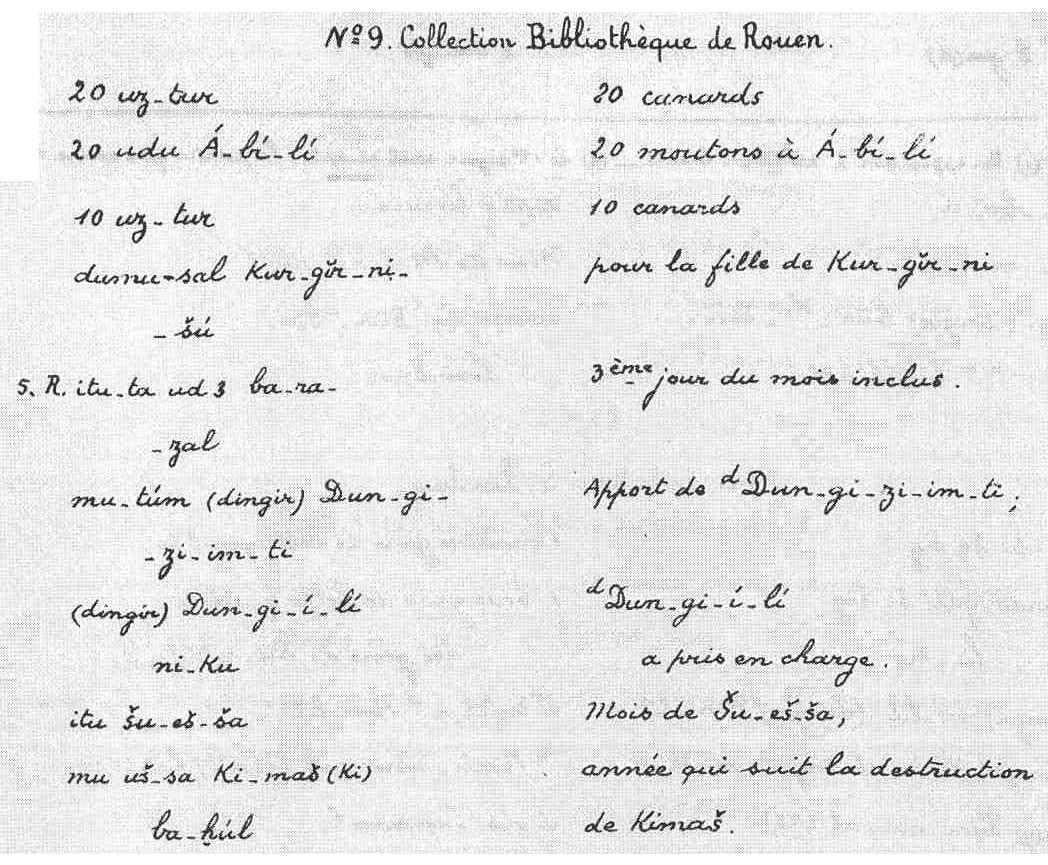 Nº 9. Collection Bibliothèque de Rouen.
20 uz-tur 20 canards
20 udu Á-bí-lí 20 moutons à Á-bí-lí
10 uz-tur 10 canards
dumu-sal Kur-gĭr-ni- pour la fille de Kur-gĭr-ni
-šú
5. R. itu-ta ud 3 ba-ra- 3ème jour du mois inclus.
-zal
mu-túm (dingir) Dun-gi- Apport de d Dun-gi-zi-im-ti,
-zi-im-ti
(dingir) Dun-gi-í-lí d Dun-gi-í-lí
ni-Ku a pris en charge.
itu šu-eš-ša Mois de Šu-eš-ša,
mu uš-sa Ki-maš (Ki) année qui suit la destruction
ba-ḫúl de Kimaš.